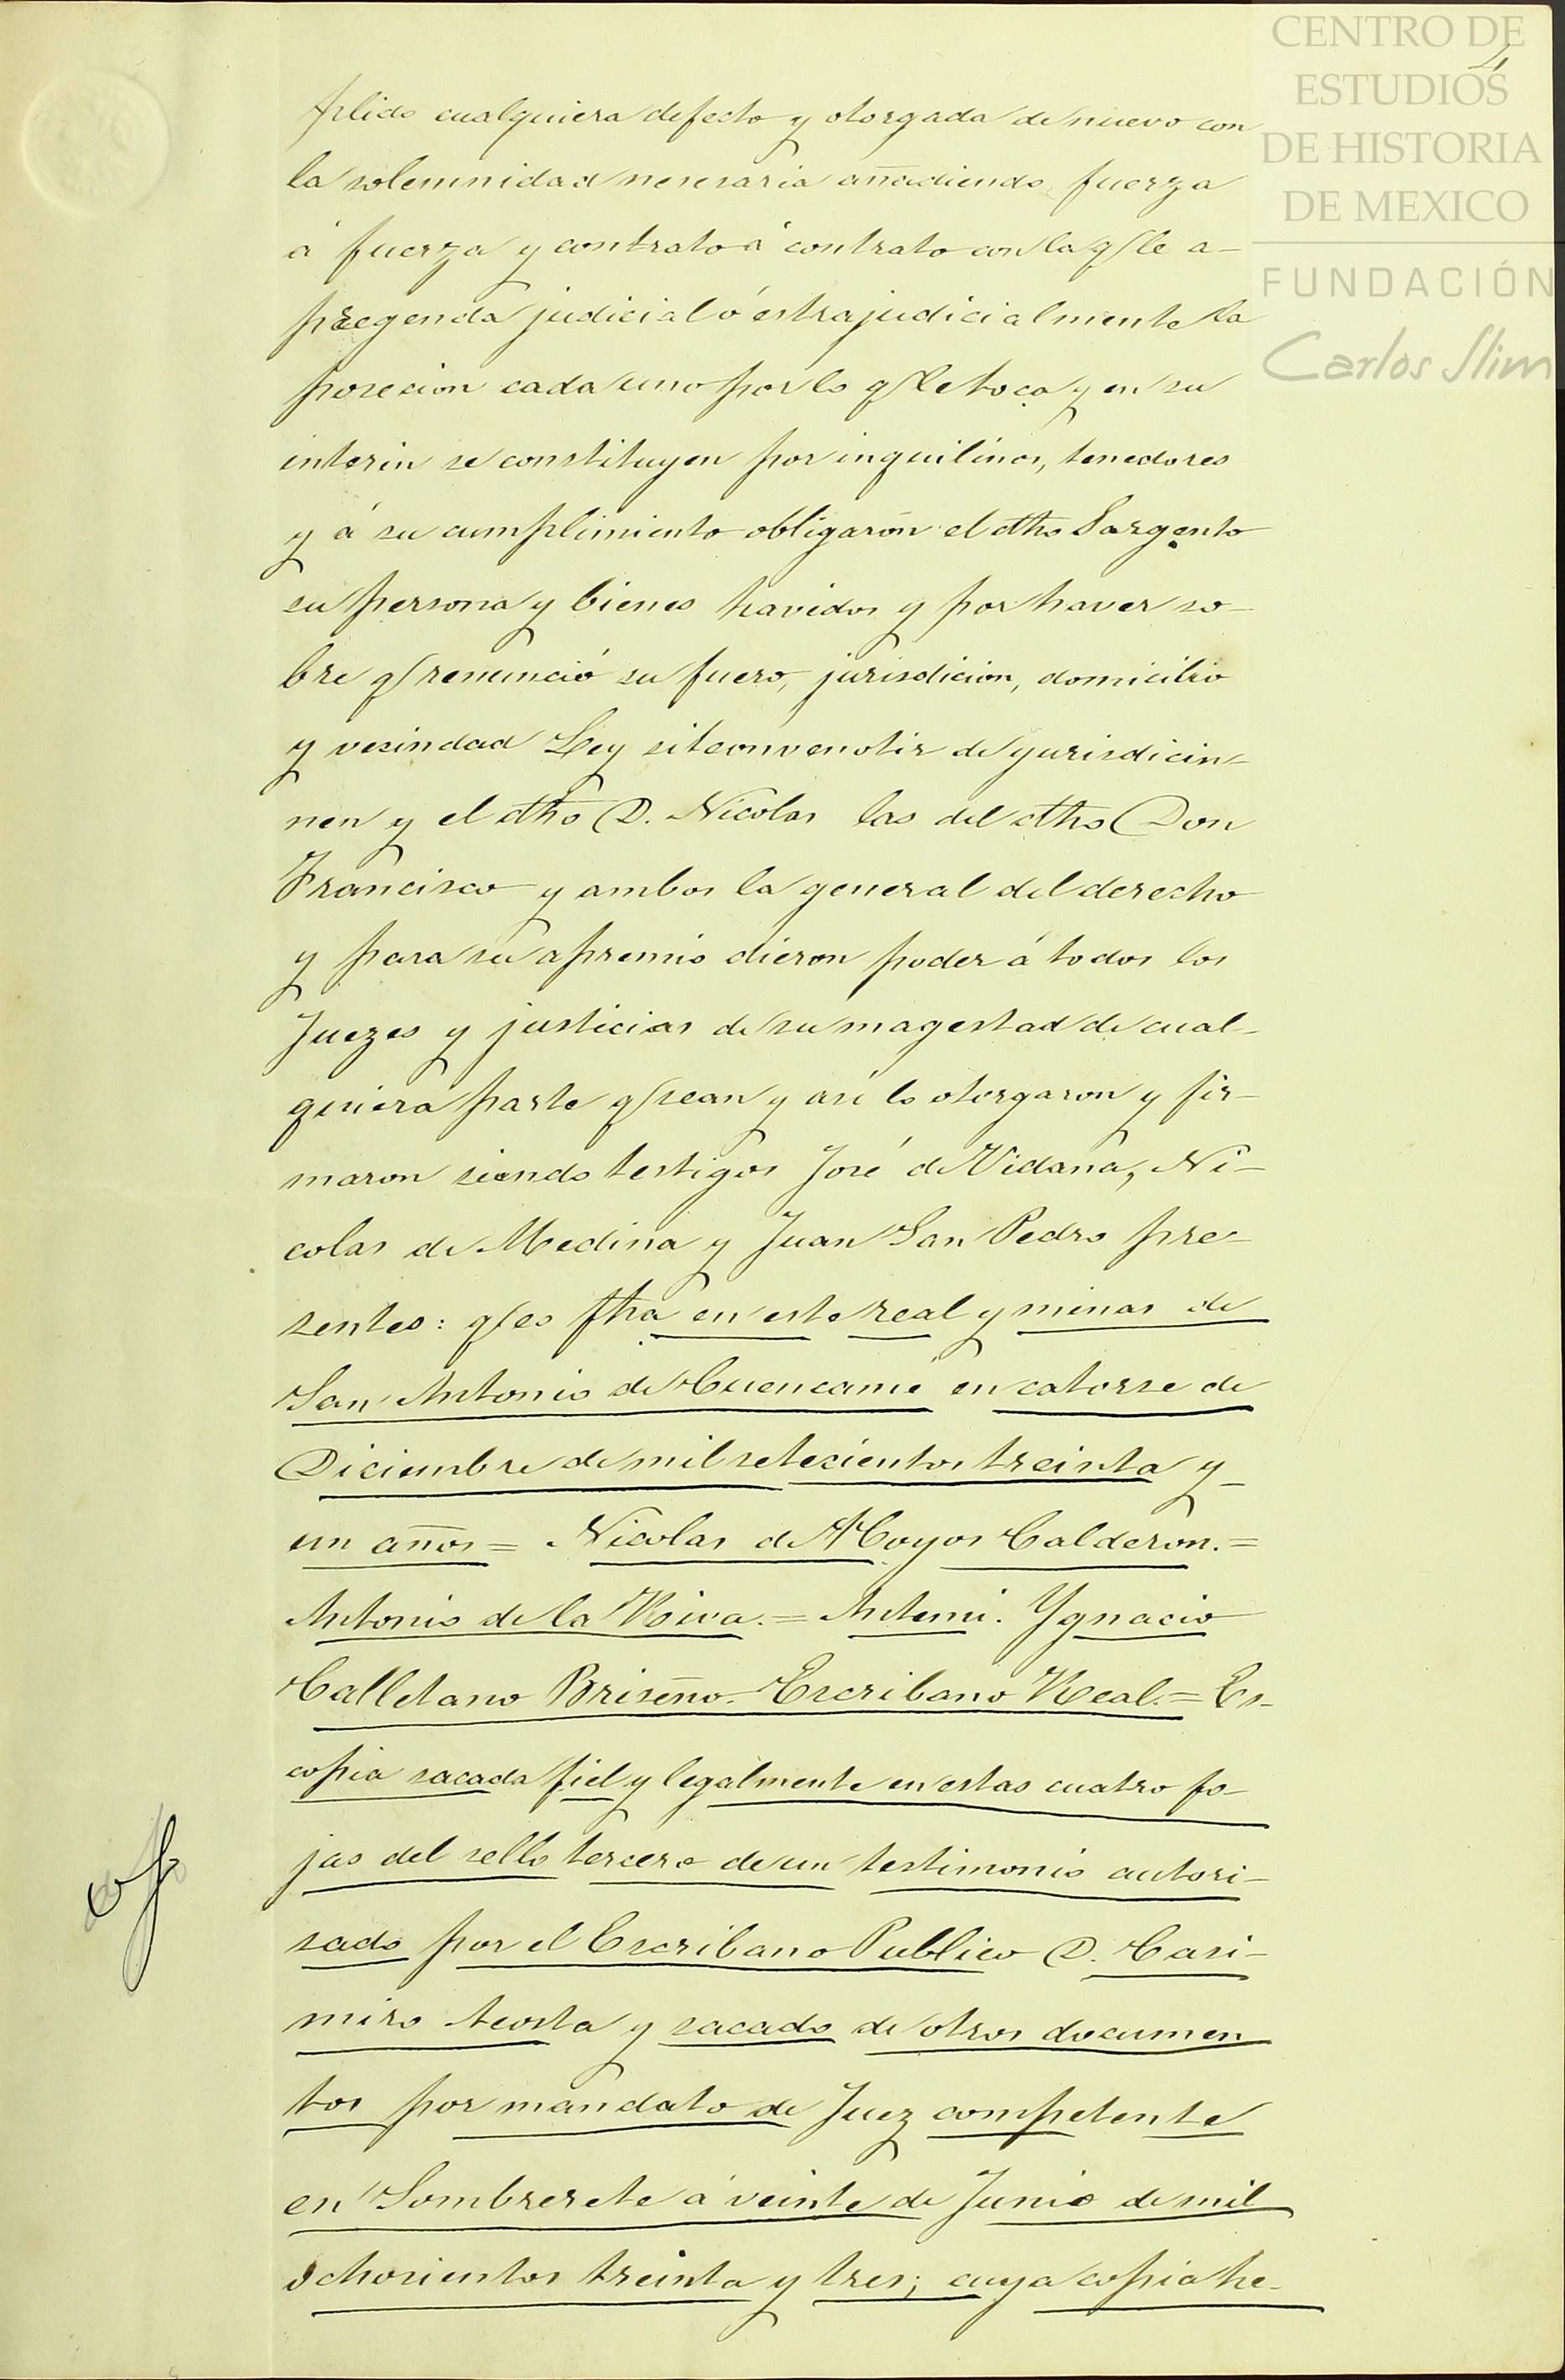 CENTRO DE
ESTUDIOS
DE HISTORIA
DE MEXICO
FUNDACIÓN
Carlos Slim
4
plido cualquiera defecto y otorgada de nuevo con
la solemnidad nesesaria añadiendo fuerza
á fuerza y contrato á contrato con la q/ le a-
pregenda judicial ó estrajudicialmente la
posecion cada uno por lo q/ le toca y en su
interin se constituyen por inquilinos, tenedores
y á su cumplimiento obligarón el dho Sargento
su persona y bienes havidos y por haver so-
bre q/ renunció su fuero, jurisdicion, domicilio
y vesindad Ley sitconvenotir de yurisdicin-
nen y el dho D. Nicolas las del dho Don
Francisco y ambos la general del derecho
y para su apremio dieron poder á todos los
Juezes y justicias de su magestad de cual-
quiera parte q/ sean y asi lo otorgaron y fir-
maron siendo testigos José de Vidaña, Ni-
colas de Medina y Juan San Pedro pre-
sentes: q/ es fha en este real y minas de
San Antonio de Cuencamé en catorse de
Diciembre de mil setecientos treinta y
un años = Nicolas de Hoyos Calderon. =
Antonio de la Riva. = Antemi. Ygnacio
Calletano Briseño. Escribano Real. = Es
copia sacada fiel y legalmente en estas cuatro fo-
jas del sello tercero de un testimonio autori-
sado por el Escribano Publico D. Casi-
miro Acosta y sacado de otros documen
tos por mandato de Juez competente
en Sombrerete á veinte de Junio de mil
ochosientos treinta y tres; cuya copia he-